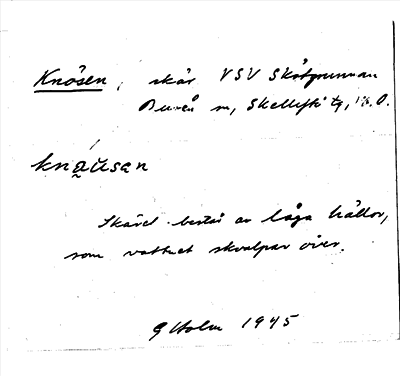 Knösen, skär VSV Skötgrunnan
Bureå sn, Skellefte tg, V.b.
knạ̈usan
Skäret består av låga hällor,
som vattnet skvalpar över.
G Holm 1945